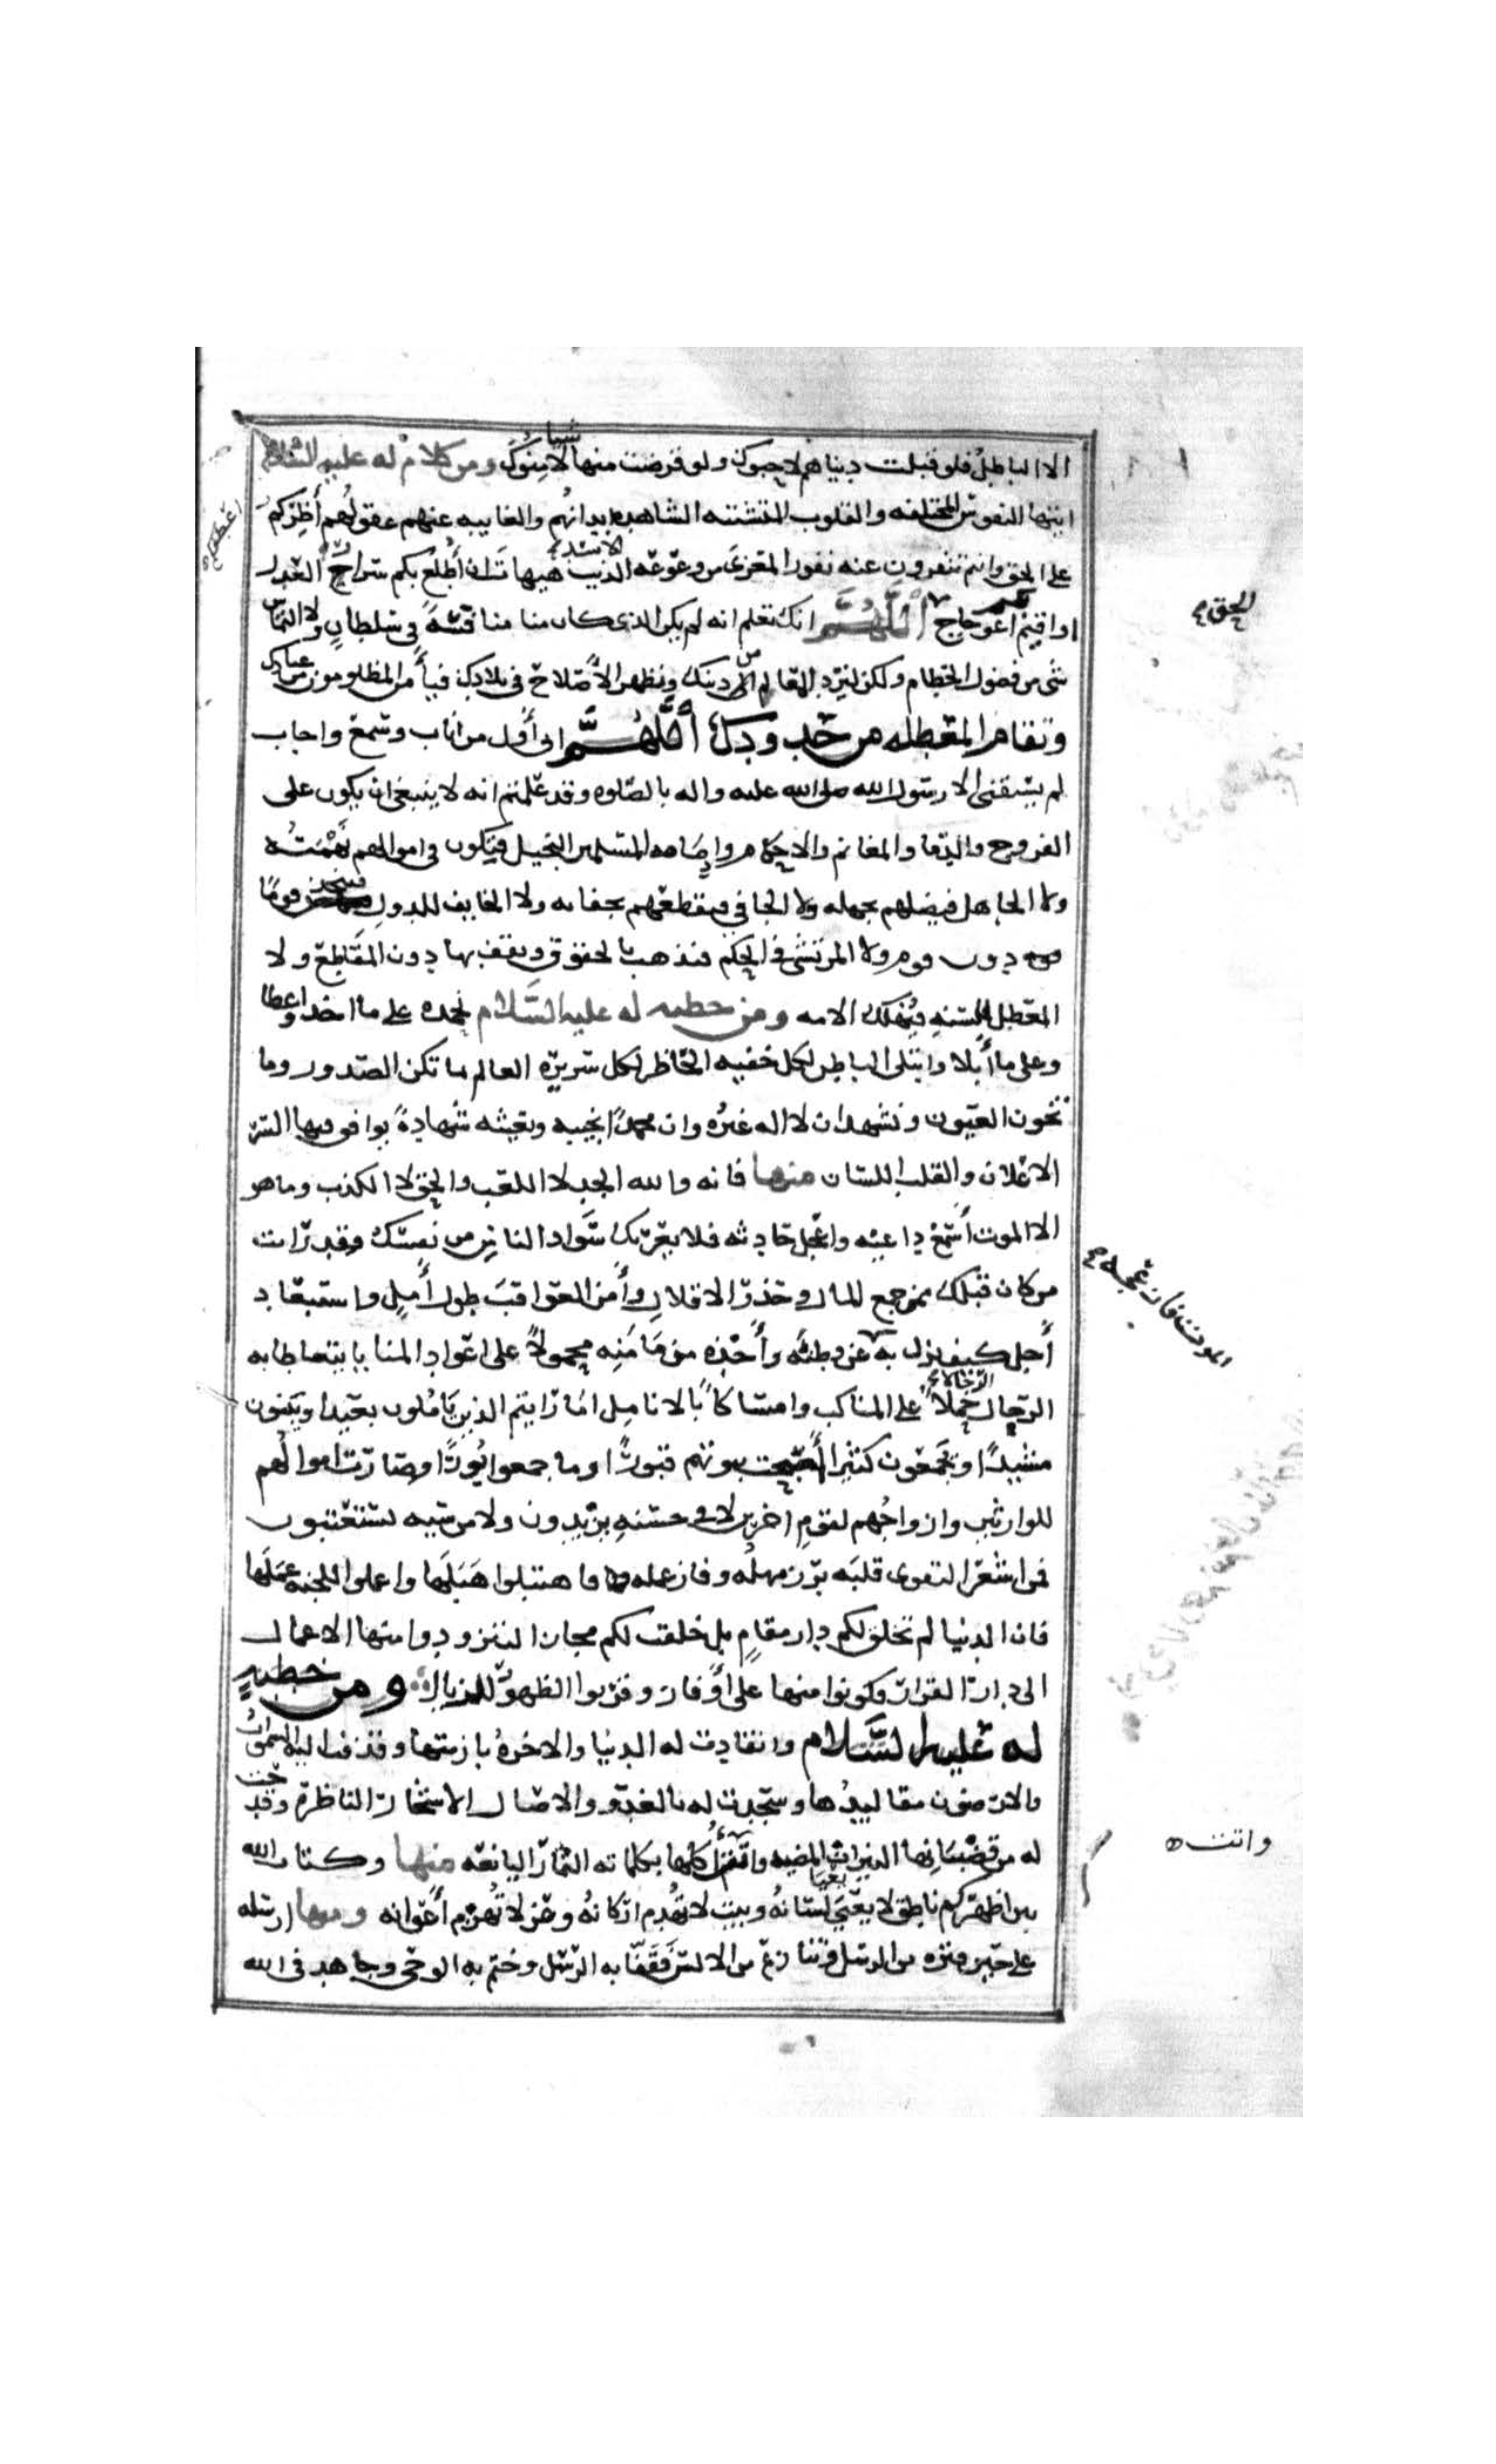 الا الباطل فلو قبلت دنياهم لاحبوك ولو قرضت منها لامنوك ومن كلام له عليه السلام
شيا
ايتها النفوس المختلفه والقلوب المتشتته الشاهده ابدانهم والغايبه عنهم عقولهم أظأركم
اعطفكم
على الحق وانتم تنفرون عنه نفور المعزى من وعوعه الاسد هيهات ان أطلع بكم سرار العدل
او اقيم اعوجاج الحق اللهم انك تعلم انه لم يكن الذى كان منا منافسة في سلطان ولا التماس
الحق
شى من فضول الحطام ولكن لنرد المعالم من دينك ونظهر الاصلاح في بلادك فيأمن المظلومون من عبادك
وتقام المعطله من حدودك أللهم انى أول من اناب وسمع واجاب
لم يسبقنى الا رسول الله صلى الله عليه واله بالصلوه وقد علمتم انه لا ينبغى ان يكون على
الفروج والدما والمغانم والاحكام وإمامه المسلمين البخيل فتكون في اموالهم نهمته
ولا الجاهل فيضلهم بجهله ولا الجافي فيقطعهم بجفائه ولا الخايف للدول فيتخذ قومًا
دون قوم ولا المرتشى في الحكم فيذهب بالحقوق ويقف بها دون المقاطع ولا
المعطل للسنه فيهلك الامه ومن خطبه له عليه السلام نحمده على ما اخذ واعطا
وعلى ما أبلا وابتلى الباطن لكل خفيه الحاضر لكل سريره العالم بما تكن الصدور وما
تخون العيون ونشهد ان لا اله غيره وان محمدًا نجيبه وبعيثه شهادةً يوافق فيها السر
الاعلان والقلب اللسان منها فانه والله الجد لا اللعب والحق لا الكذب وما هو
الا الموت أسمع داعيه واعجل حاديه فلا يغرنك سواد الناس من نفسك وقد رايت
من كان قبلك ممن جمع المال وحذر الاقلال وأمن العواقب طول أمل واستبعاد
أجل كيف نزل به الموت فازعجه عن وطنه وأخذه من مأمنه محمولاً على اعواد المنايا يتعاطا به
الرجال الرجال حملاً على المناكب وامساكاً بالانامل اما رايتم الذين يأملون بعيدا ويبنون
مشيدًا ويجمعون كثيرا أصبحت بيوتهم قبورًا وما جمعوا بُورًا وصارت اموالهم
للوارثين وازواجهم لقوم اخرين لا في حسنه يزيدون ولا من سيه يستعتبون
فمن اشعر التقوى قلبه برز مهله وفاز عمله فاهتبلوا هبلها واعملوا للجنه عملها
فان الدنيا لم تخلق لكم دار مقام بل خلقت لكم مجازا لتزودوا منها الاعمال
الى دار القرار فكونوا منها على أوفاز وقربوا الظهور للزيال ومن خطبه
له عليه السلام وانقادت له الدنيا والاخرة بازمتها وقذفت اليه السموات
والارضون مقاليدها وسجدت له بالغدو والاصال الاشجار الناظرة وقدحت
له من قضبانها النيران المضيه واتت أكلها بكلماته الثمار اليانعه منها وكتاب الله
واتت
بين اظهركم ناطق لا يعيى لسانه وبيت لا تهدم اركانه وعز لا تهزم أعوانه ومنها ارسله
على حين فتره من الرسل وتنازع من الالسن فقفا به الرسل وختم به الوحى وجاهد في الله